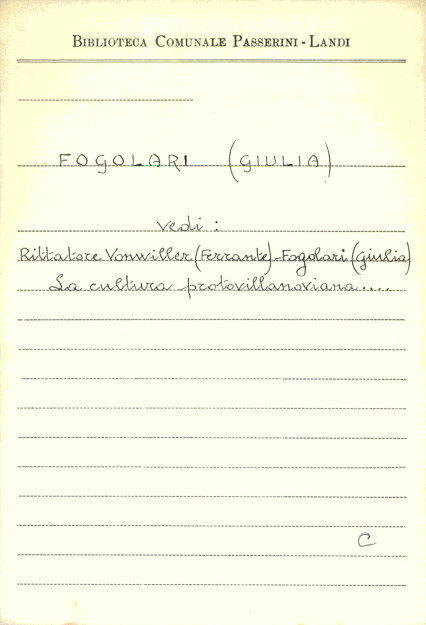 BIBLIOTECA COMUNALE PASSERINI - LANDI
FOGOLARI (GIULIA)
vedi :
Rittatore Vonwiller (Ferrante) - Fogolari (Giulia)
La cultura protovillanoviana ....
C